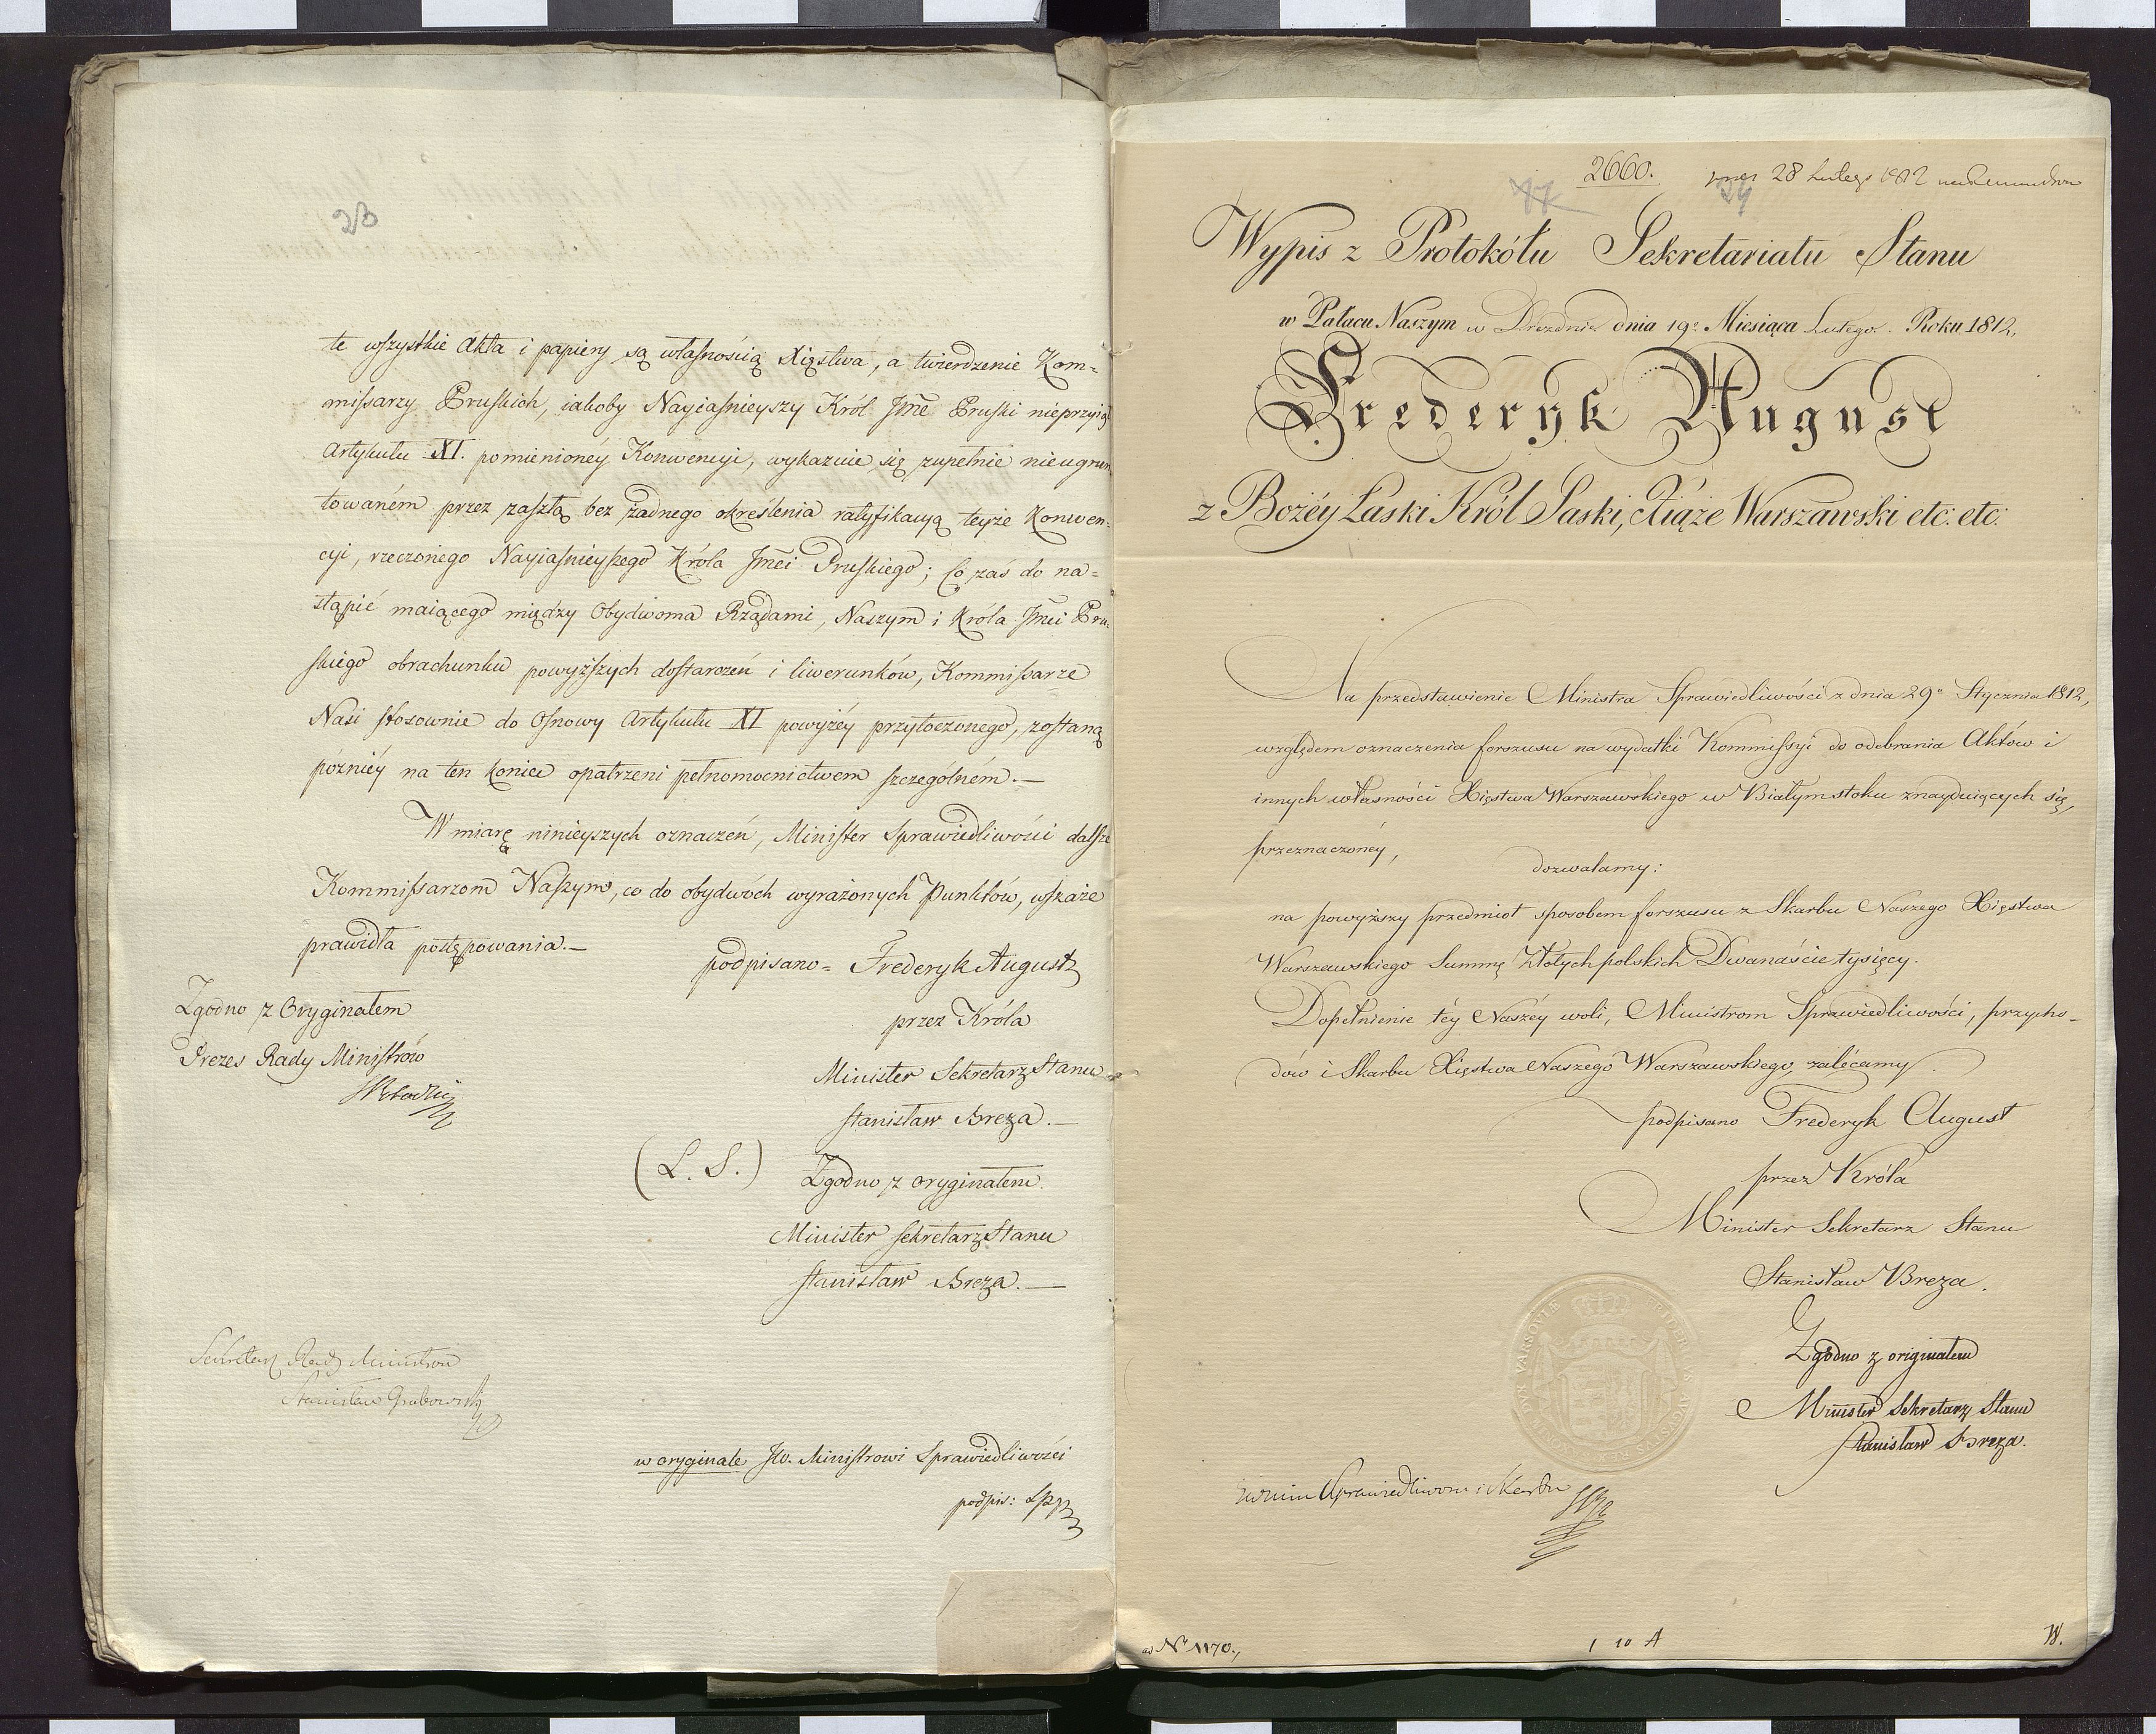 23
te wszystkie Akta i papiery są własnością Xięstwa, a twierdzenie Kom-
missarzy Pruskich, iakoby Nayiaśnieyszy Król Jmć Pruski nieprzyiął
Artykułu XI. pomienionéy Konwencyi, wykazuie się zupełnie nieugrun
towaném przez zaszłą bez żadnego określenia ratyfikacyą teyże Konwen-
cyi, rzeczonego Nayiaśnieyszego Króla Jmci Pruskiego; Co zaś do na-
stąpić maiącego między Obydwoma Rządami, Naszym i Króla Jmci Pru-
skiego obrachunku powyższych dostarczeń i liwerunków, Kommissarze
Nasi stosownie do Osnowy Artykułu XI powyżéy przytoczonego, zostaną
późniéy na ten koniec opatrzeni pełnomocnictwem szczególném.—
W miarę ninieyszych oznaczeń, Minister Sprawiedliwości dalsze
Kommissarzom Naszym, co do obydwóch wyrażonych Punktów, wskaże
prawidła postępowania.—
podpisano = Frederyk August
przez Króla
Minister Sekretarz Stanu
Stanisław Breza.—
Zgodno z Oryginałem
Prezes Rady Ministrów
(L. S.)
Zgodno z oryginałem.
Minister Sekretarz Stanu
Stanisław Breza.—
Sekretarz Rady Ministrów
Stanisław Grabowski
w oryginale JW. Ministrowi Sprawiedliwości
podpis:
2660.
28 Lutego 1812
77
24
Wypis z Protokółu Sekretariatu Stanu
w Pałacu Naszym w Dreznie dnia 19. Miesiąca Lutego. Roku 1812.
Frederyk August
z Bożéy Łaski Król Saski, Xiąże Warszawski etc: etc:
Na przedstawienie Ministra Sprawiedliwości z dnia 29. Stycznia 1812,
względem oznaczenia forszusu na wydatki Kommissyi do odebrania Aktów i
innych własności Xięstwa Warszawskiego w Białymstoku znayduiących się,
przeznaczonéy,
dozwalamy:
na powyższy przedmiot sposobem forszusu z Skarbu Naszego Xięstwa
Warszawskiego Summę Złotych polskich Dwanaście tysięcy.
Dopełnienie téy Naszéy woli, Ministrom Sprawiedliwości, przycho-
dów i Skarbu Xięstwa Naszego Warszawskiego, zalécamy.
podpisano Frederyk August
przez Króla
Minister Sekretarz Stanu
Stanisław Breza.
Zgodno z originałem
Minister Sekretarz Stanu
Stanisław Breza.
Sprawiedliwości i Skarbu
ad Nr 1170.,
1 10 A
W.